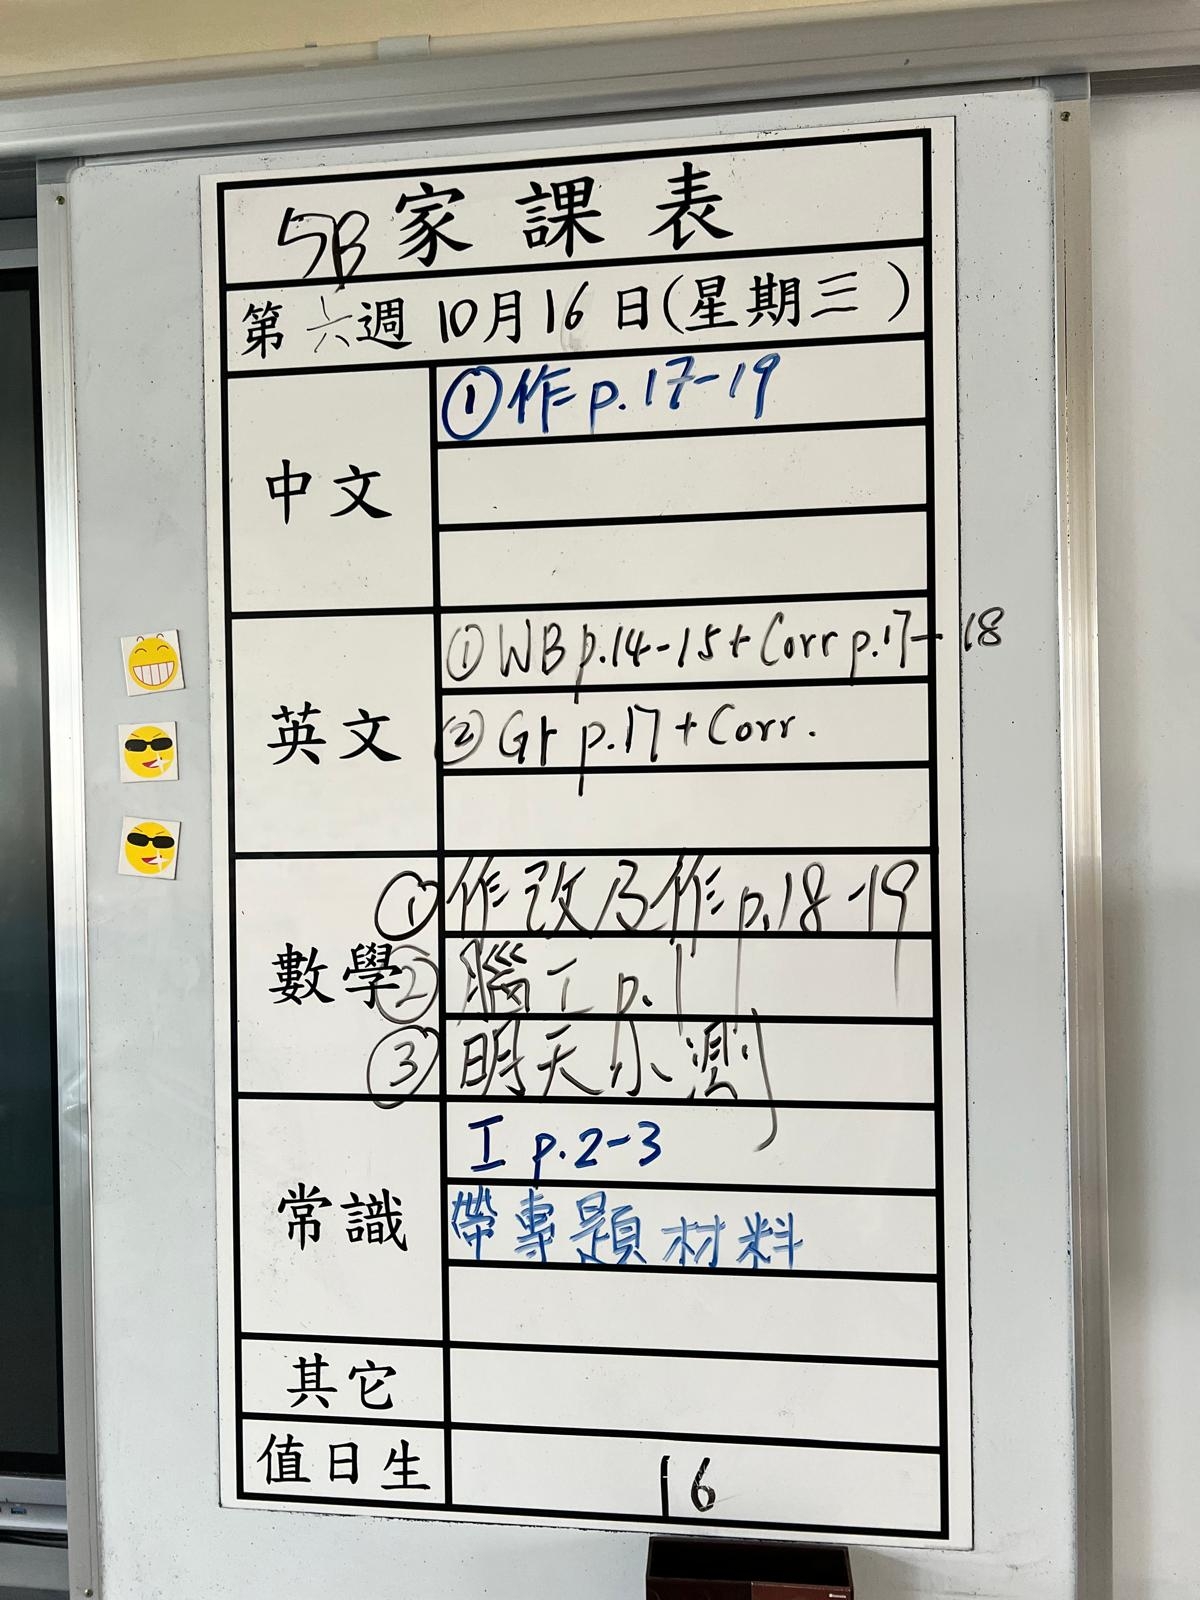 5B 家課表
第六週 10月16日(星期三)
中文
①作 p.17-19
英文
①WB p.14-15+Corr p.17-18
②Gr p.17+Corr.
數學
①作改及作 p.18-19
②腦工 p.1
③明天小測
常識
工 p.2-3
帶專題材料
其它
值日生
16